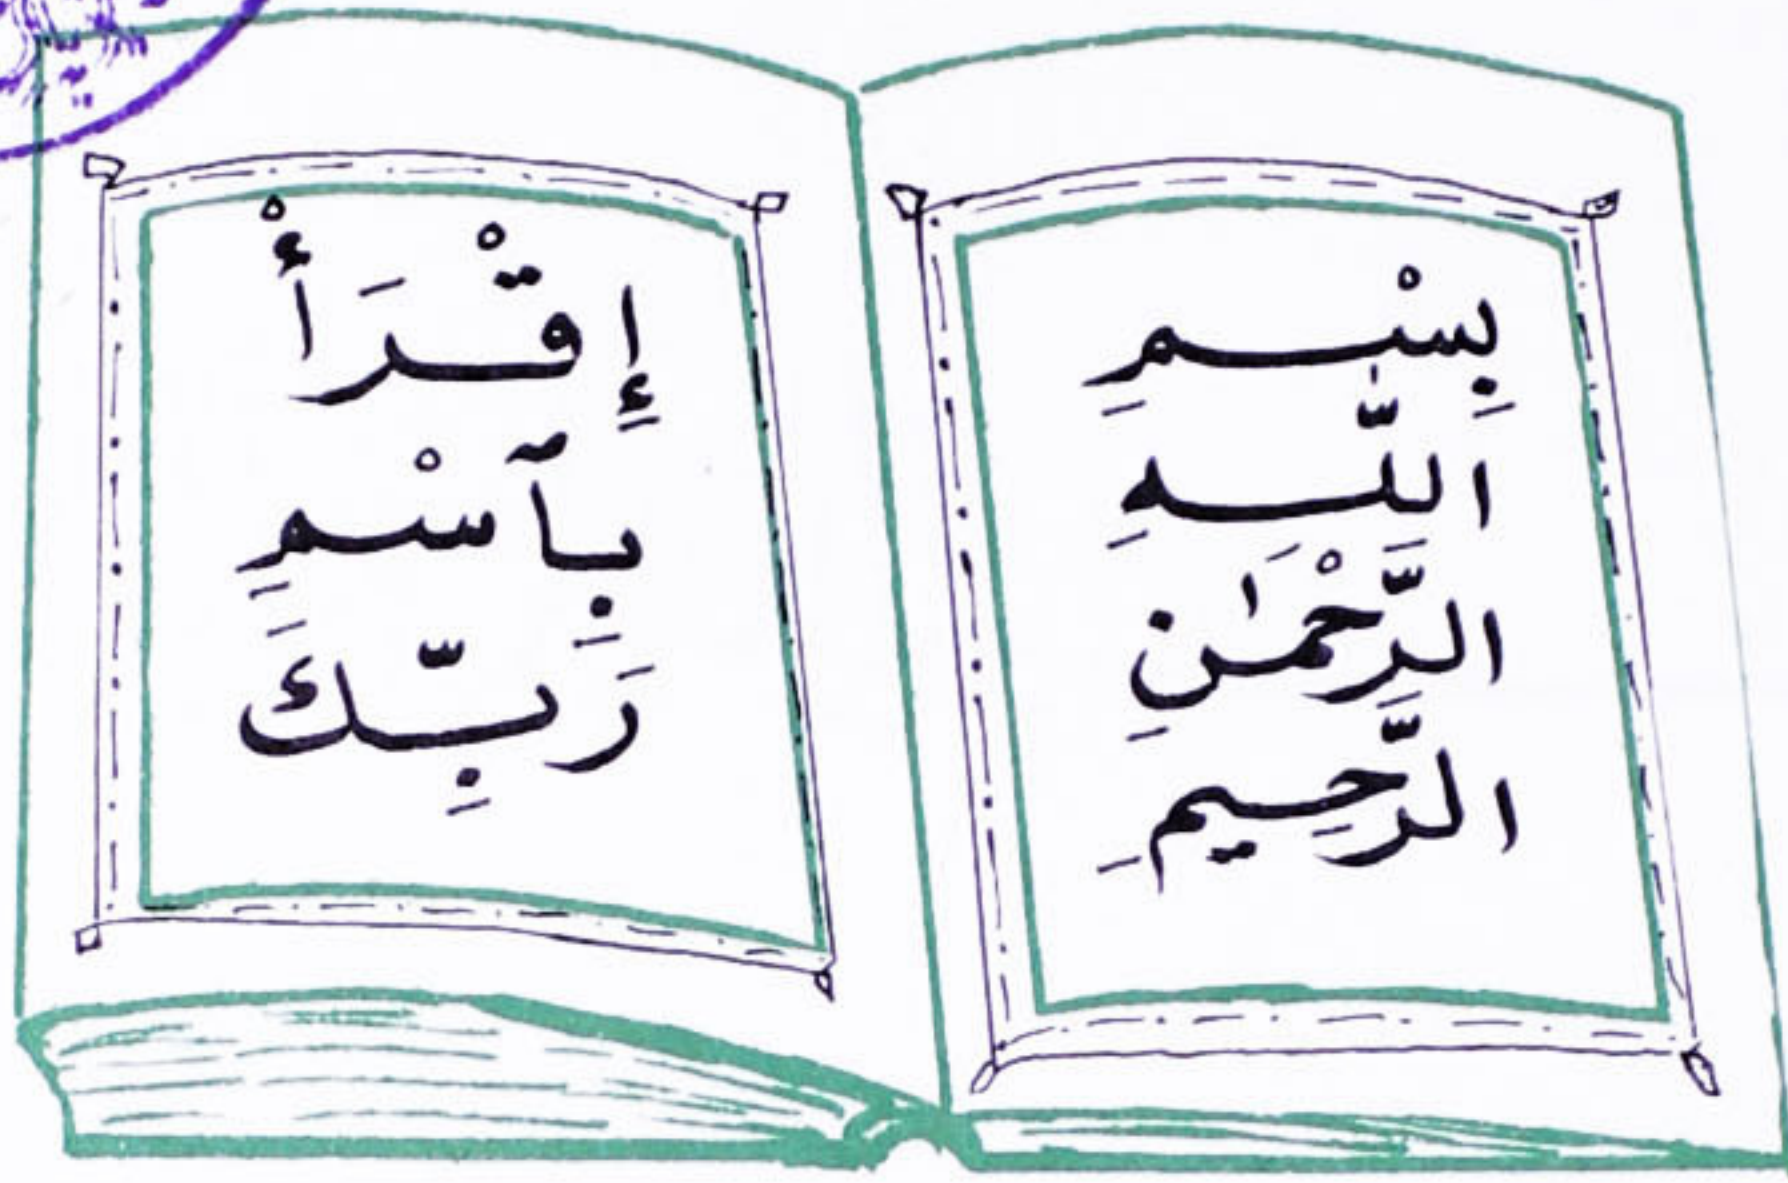 بِسْمِ
اللَّهِ
الرَّحْمَٰنِ
الرَّحِيمِ
إِقْرَأْ
بِآسْمِ
رَبِّكَ